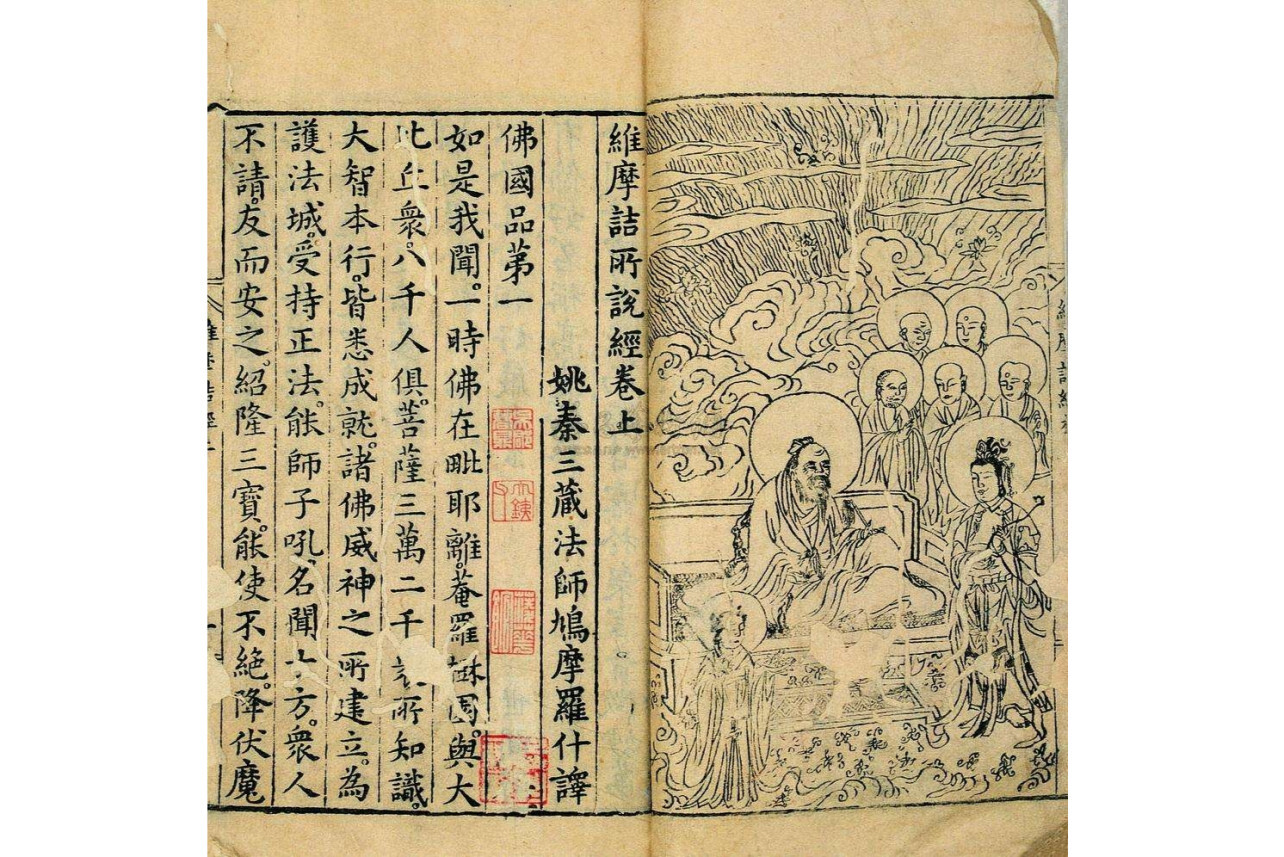 維摩詰所說經卷上
姚秦三藏法師鳩摩羅什譯
佛國品第一
如是我聞。一時佛在毗耶離。菴羅樹園。與大
比丘衆。八千人俱。菩薩三萬二千。衆所知識。
大智本行。皆悉成就。諸佛威神之所建立。為
護法城。受持正法。能師子吼。名聞十方。衆人
不請。友而安之。紹隆三寶。能使不絕。降伏魔